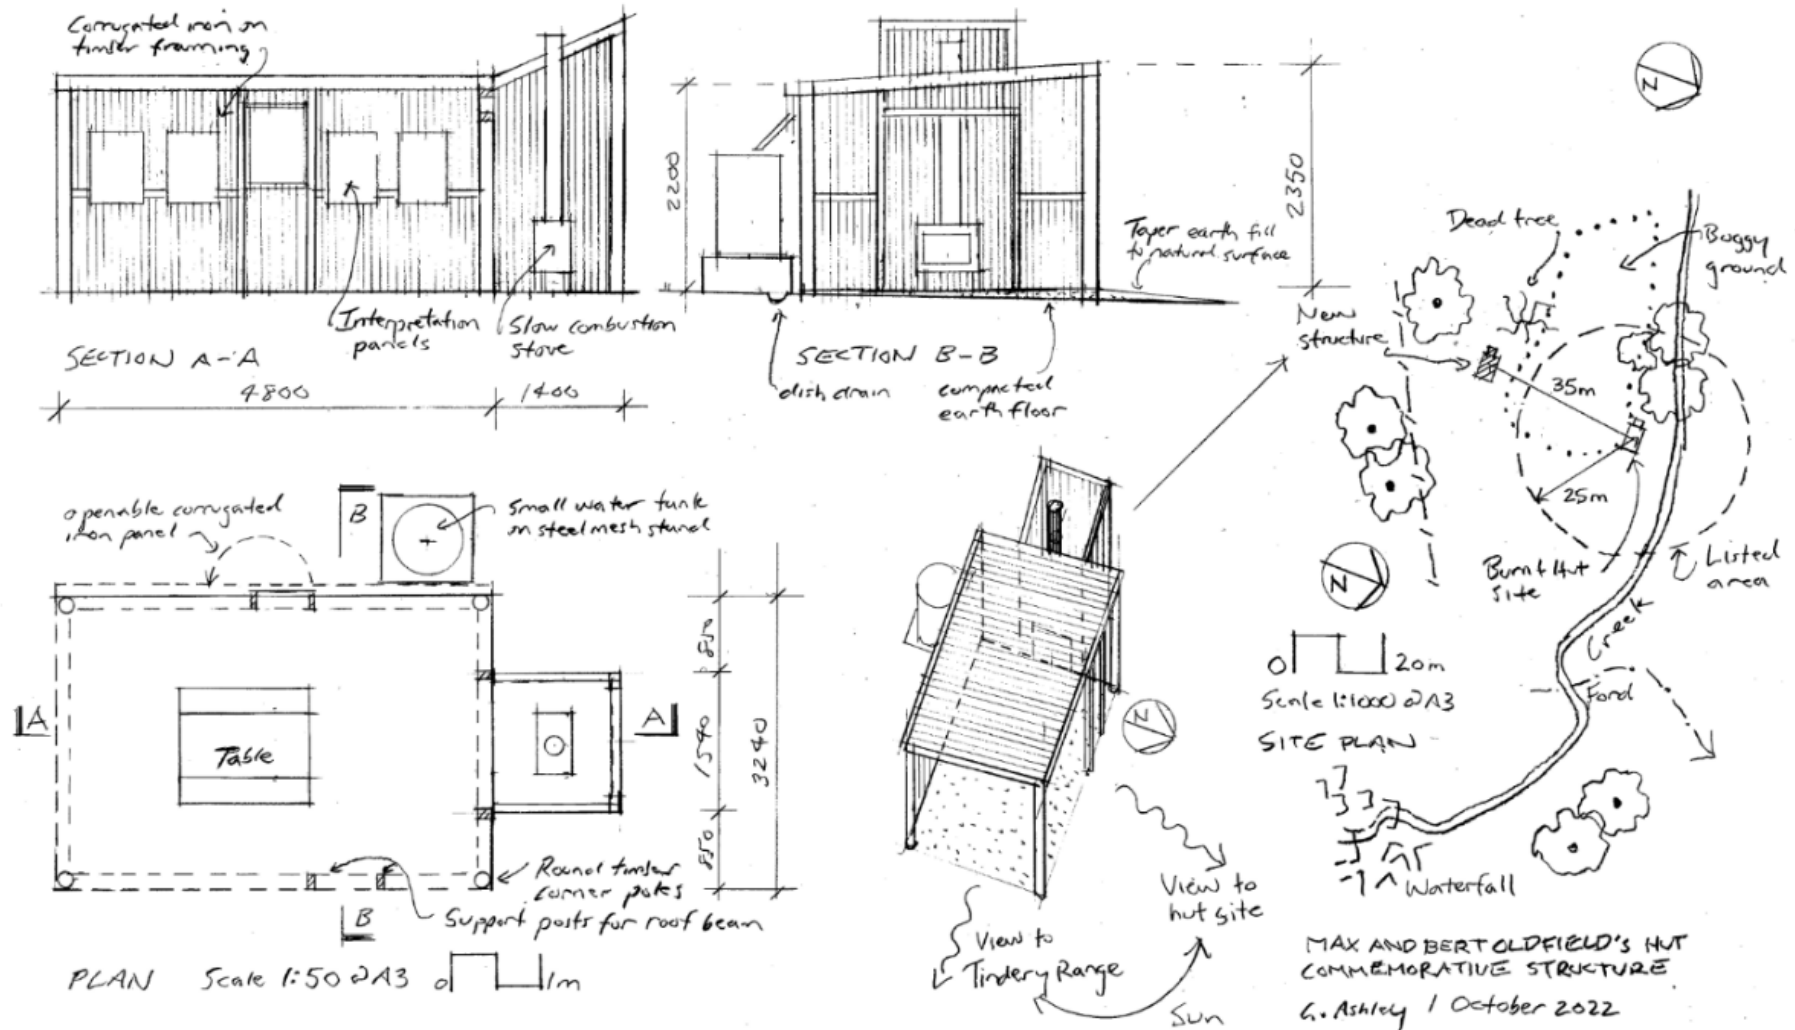 Corrugated iron on
timber framing
Interpretation
panels
Slow combustion
stove
SECTION A-A
4800
1400
2200
2350
Taper earth fill
to natural surface
SECTION B-B
dish drain
compacted
earth floor
N
Dead tree
Boggy
ground
New
structure
35m
25m
Burnt Hut
site
Listed
area
Creek
Ford
N
0
20m
Scale 1:1000 @A3
SITE PLAN
Waterfall
openable corrugated
iron panel
B
Small water tank
on steel mesh stand
A
Table
A
850
1540
850
3240
Round timber
corner poles
Support posts for roof beam
B
PLAN Scale 1:50 @A3 0 1m
N
View to
hut site
View to
Tindery Range
Sun
MAX AND BERT OLDFIELD'S HUT
COMMEMORATIVE STRUCTURE
G. Ashley / October 2022